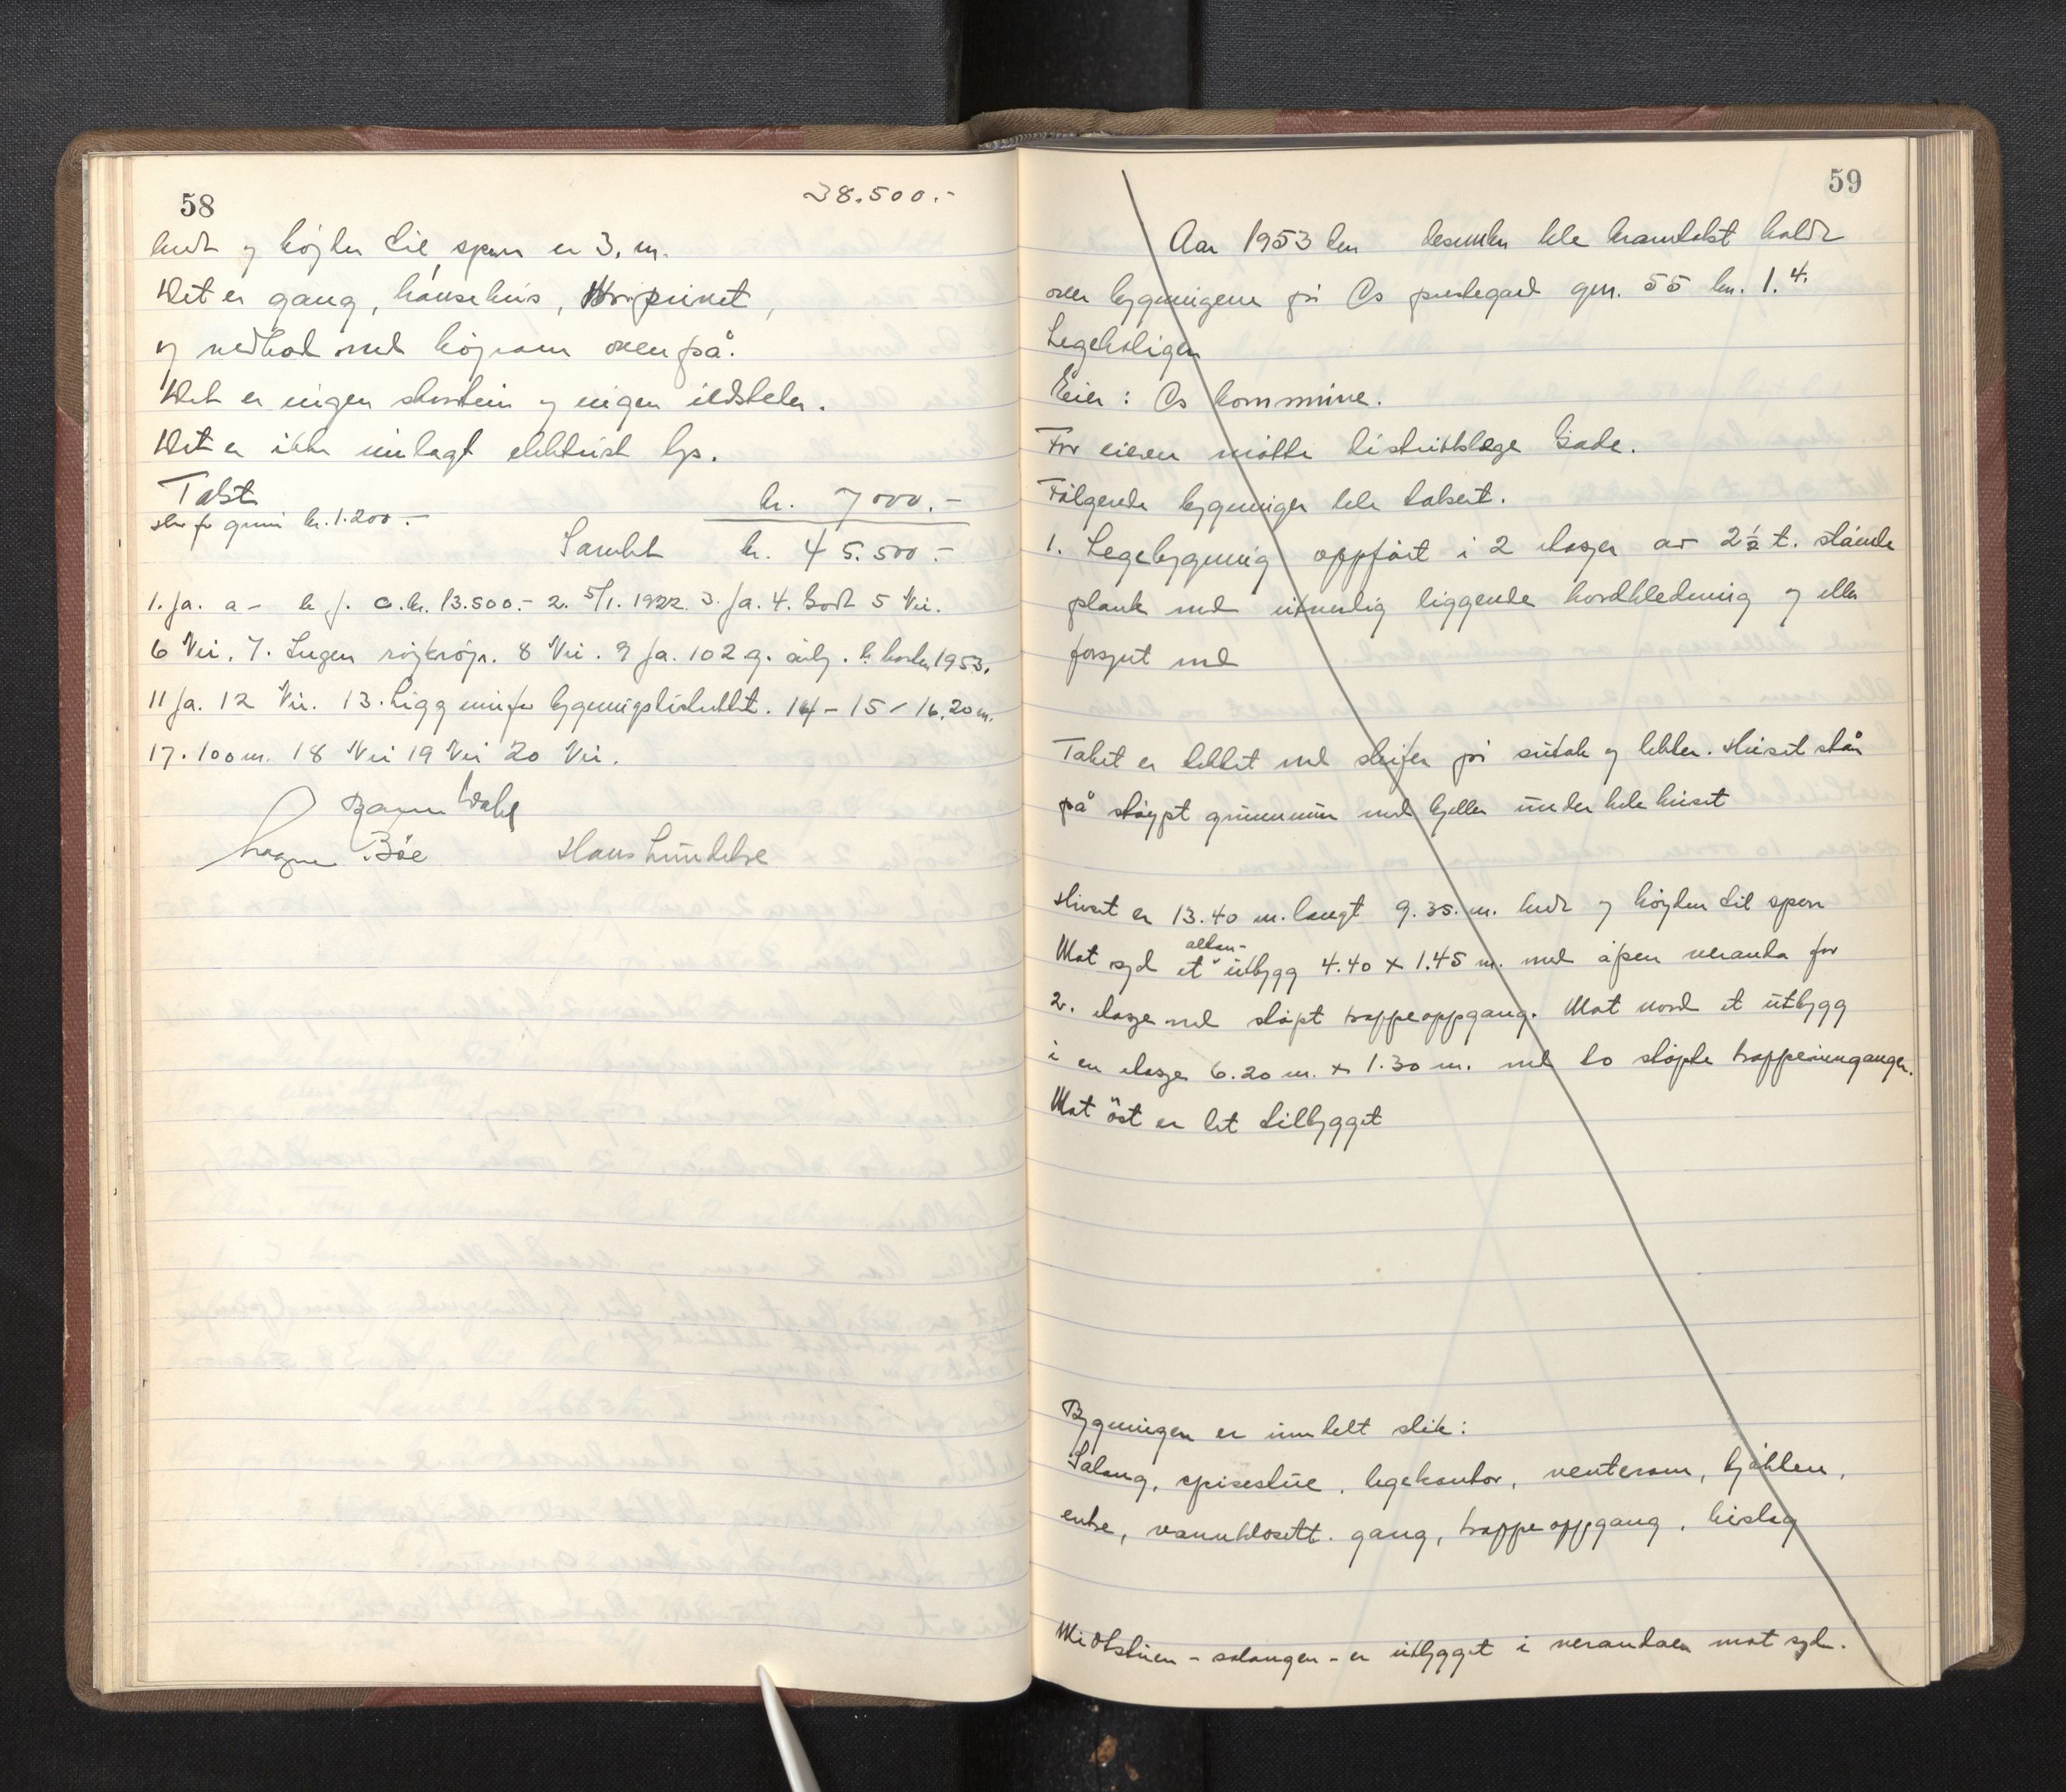 58
38.500.-
bredt og høyden til sperr er 3. m.
Det er gang, hønsehus,
og vedbod med høyrom ovenpå.
Det er ingen skorstein og ingen ildsteder.
Det er ikke innlagt elektrisk lys.
Takst kr. 7000.-
kr. 1.200.-
Samlet kr. 45.500.-
1. Ja. a - b j. c. kr. 13.500.- 2. 5/1. 1922. 3. Ja. 4. Godt 5 Nei.
6 Nei. 7. Ingen 8 Nei. 9 Ja. 10 2 g. årlig. 1953.
11 Ja. 12 Nei. 13. Ligg innifor bygningsdistriktet. 14 - 15 - 16. 20 m.
17. 100 m. 18 Nei 19 Nei 20 Nei.
Dahl
Bøe Hans
59
Aar 1953 den desember ble branntakst holdt
over bygningene på Os prestegard gnr. 55 bn. 1.4.
Legeboligen
Eier: Os kommune.
For eieren møtte distriktslege Gade.
Følgende bygninger ble taksert.
1. Legebygning oppført i 2 etasjer av 2½ t. stående
plank med utvendig liggende bordkledning og eller
forsynt med
Taket er tekket med skifer på sutak og lekter. Huset står
på støypt grunnmur med kjeller under hele huset
Huset er 13.40 m. langt 9.35. m. bredt og høyden til sperr
Mot syd et altan-utbygg 4.40 x 1.45 m. med åpen veranda for
2. etasje med støpt trappeoppgang. Mot nord et utbygg
i en etasje 6.20 m. x 1.30 m. med to støpte trappeinnganger.
Mot øst er det tilbygget
Bygningen er inndelt slik:
Salong, spisestue, legekontor, venterom, kjøkken,
entre, vannklosett. gang, trappeoppgang, bislag
Midtstuen - salongen - er utbygget i verandaen mot syd.